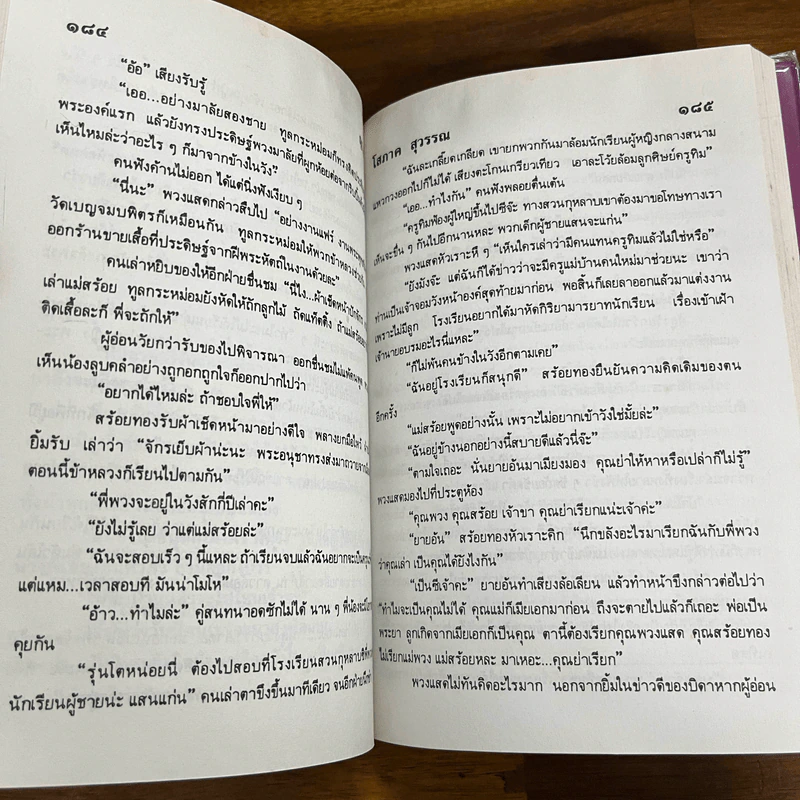 ๑๘๔
“อ้อ” เสียงรับรู้
“เออ...อย่างมาลัยสองชาย ทูลกระหม่อมก็ทรง
พระองค์แรก แล้วยังทรงประดิษฐ์พวงมาลัยที่ผูกห้อยต่อจาก
เห็นไหมล่ะว่าอะไร ๆ ก็มาจากข้างในวัง”
คนฟังค้านไม่ออก ได้แต่นิ่งฟังเงียบ ๆ
“นี่นะ” พวงแสดกล่าวสืบไป “อย่างงานแฟร์ งาน
วัดเบญจมบพิตรก็เหมือนกัน ทูลกระหม่อมให้พวกข้าหลวงช่วย
ออกร้านขายเสื้อที่ประดิษฐ์จากฝีพระหัตถ์ในงานด้วยละ”
คนเล่าหยิบของให้อีกฝ่ายชื่นชม “นี่ไง...ผ้าเช็ดหน้า
เล่าแม่สร้อย ทูลกระหม่อมยังหัดให้ถักลูกไม้ ถัดแท้ตติ้ง ถ้าแม่สร้อย
ติดเสื้อละก็ พี่จะถักให้”
ผู้อ่อนวัยกว่ารับของไปพิจารณา ออกชื่นชมไม่แพ้คนพูด
เห็นน้องลูบคลำอย่างถูกอกถูกใจก็ออกปากไปว่า
“อยากได้ไหมล่ะ ถ้าชอบใจพี่ให้”
สร้อยทองรับผ้าเช็ดหน้ามาอย่างดีใจ พลางยกมือไหว้
ยิ้มรับ เล่าว่า “จักรเย็บผ้าน่ะนะ พระอนุชาทรงส่งมาถวาย
ตอนนี้ข้าหลวงก็เรียนไปตามกัน”
“พี่พวงจะอยู่ในวังสักกี่ปีเล่าคะ”
“ยังไม่รู้เลย ว่าแต่แม่สร้อยล่ะ”
“ฉันจะสอบเร็ว ๆ นี้แหละ ถ้าเรียนจบแล้วฉันอยากจะเป็น
แต่แหม...เวลาสอบที มันน่าโมโห”
“อ้าว...ทำไมล่ะ” คู่สนทนาอดซักไม่ได้ นาน ๆ พี่น้องจะมี
คุยกัน
“รุ่นโตหน่อยนี่ ต้องไปสอบที่โรงเรียนสวนกุหลาบ
นักเรียนผู้ชายน่ะ แสนแก่น” คนเล่าตาขึงขึ้นมาทีเดียว จนอีกฝ่าย
๑๘๕
โสภาค สุวรรณ
“ฉันละเกลี้ยดเกลียด เขายกพวกกันมาล้อมนักเรียนผู้หญิงกลางสนาม
แหวกวงออกไปก็ไม่ได้ เสียงตะโกนเกรียวเทียว เอาละโว้ยล้อมลูกศิษย์ครูทิม”
“เออ...ทำไงกัน” คนฟังพลอยตื่นเต้น
“ครูทิมฟ้องผู้ใหญ่ขึ้นไปซีจ๊ะ ทางสวนกุหลาบเขาต้องมาขอโทษทางเรา
เห็นจะชื่น ๆ กันไปอีกนานหละ พวกเด็กผู้ชายแสนจะแก่น”
พวงแสดหัวเราะหึ ๆ “เห็นใครเล่าว่ามีคนแทนครูทิมแล้วไม่ใช่หรือ”
“ยังมังจ๊ะ แต่ฉันก็ได้ข่าวว่าจะมีครูแม่บ้านคนใหม่มาช่วยนะ เขาว่า
ท่านเป็นเจ้าจอมวังหน้าองค์สุดท้ายมาก่อน พอสิ้นก็เลยลาออกมาแต่งงาน
เพราะไม่มีลูก โรงเรียนอยากได้มาหัดกิริยามารยาทนักเรียน เรื่องเข้าเฝ้า
เจ้านายอบรมอะไรนี่แหละ”
“ก็ไม่พ้นคนข้างในวังอีกตามเคย”
“ฉันอยู่โรงเรียนก็สนุกดี” สร้อยทองยืนยันความคิดเดิมของตน
อีกครั้ง
“แม่สร้อยพูดอย่างนั้น เพราะไม่อยากเข้าวังใช่มั้ยล่ะ”
“ฉันอยู่ข้างนอกอย่างนี้สบายดีแล้วนี่จ๊ะ”
“ตามใจเถอะ นั่นยายอันมาเมียงมอง คุณย่าให้หาหรือเปล่าก็ไม่รู้”
พวงแสดมองไปที่ประตูห้อง
“คุณพวง คุณสร้อย เจ้าขา คุณย่าเรียกแน่ะเจ้าค่ะ”
“ยายอัน” สร้อยทองหัวเราะคิก “นึกขลังอะไรมาเรียกฉันกับพี่พวง
ว่าคุณเล่า เป็นคุณได้ยังไงกัน”
“เป็นซีเจ้าคะ” ยายอันทำเสียงล้อเลียน แล้วทำหน้าขึงกล่าวต่อไปว่า
“ทำไมจะเป็นคุณไม่ได้ คุณแม่ก็เมียเอกมาก่อน ถึงจะตายไปแล้วก็เถอะ พ่อเป็น
พระยา ลูกเกิดจากเมียเอกก็เป็นคุณ ตานี้ต้องเรียกคุณพวงแสด คุณสร้อยทอง
ไม่เรียกแม่พวง แม่สร้อยหละ มาเหอะ...คุณย่าเรียก”
พวงแสดไม่ทันคิดอะไรมาก นอกจากยิ้มในข่าวดีของบิดาหากผู้อ่อน